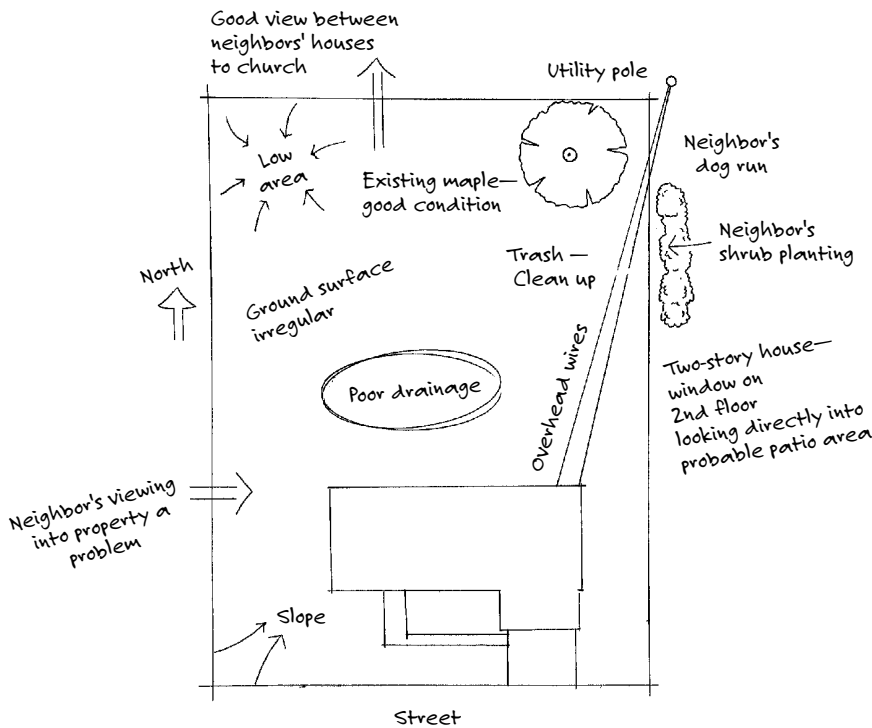 Good view between
neighbors' houses
to church
Utility pole
Low
area
Existing maple—
good condition
Neighbor's
dog run
Neighbor's
shrub planting
Trash —
Clean up
North
Ground surface
irregular
Overhead wires
Two-story house—
window on
2nd floor
looking directly into
probable patio area
Poor drainage
Neighbor's viewing
into property a
problem
Slope
Street